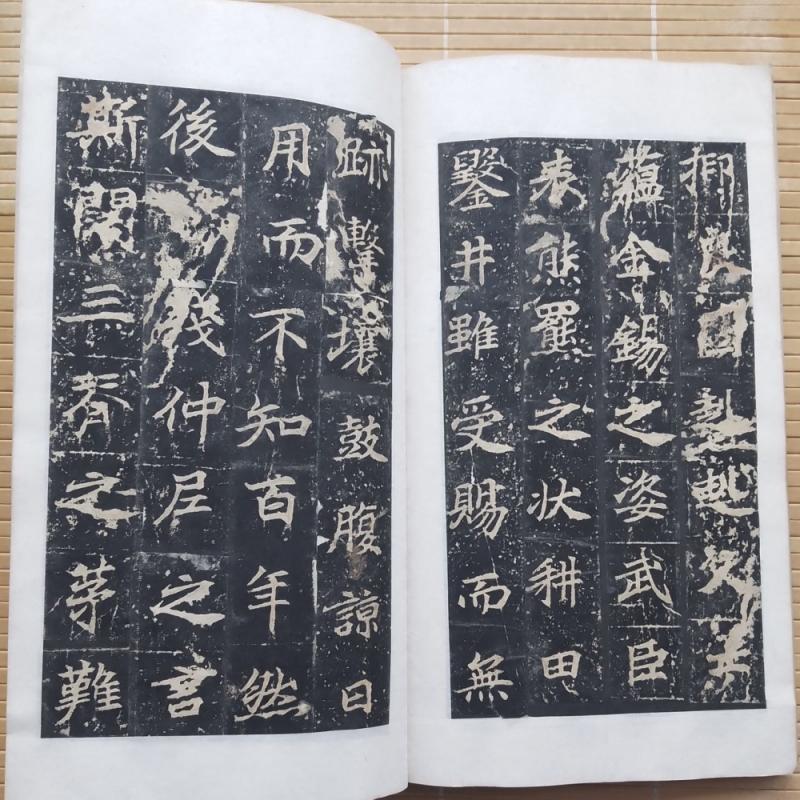 抑良國
蘊金錫之姿武臣
表熊羆之状耕田
鑿井雖受賜而無
跡擊壤鼓腹諒日
用而不知百年然
後殘仲尼之言
斯闕三脊之茅難